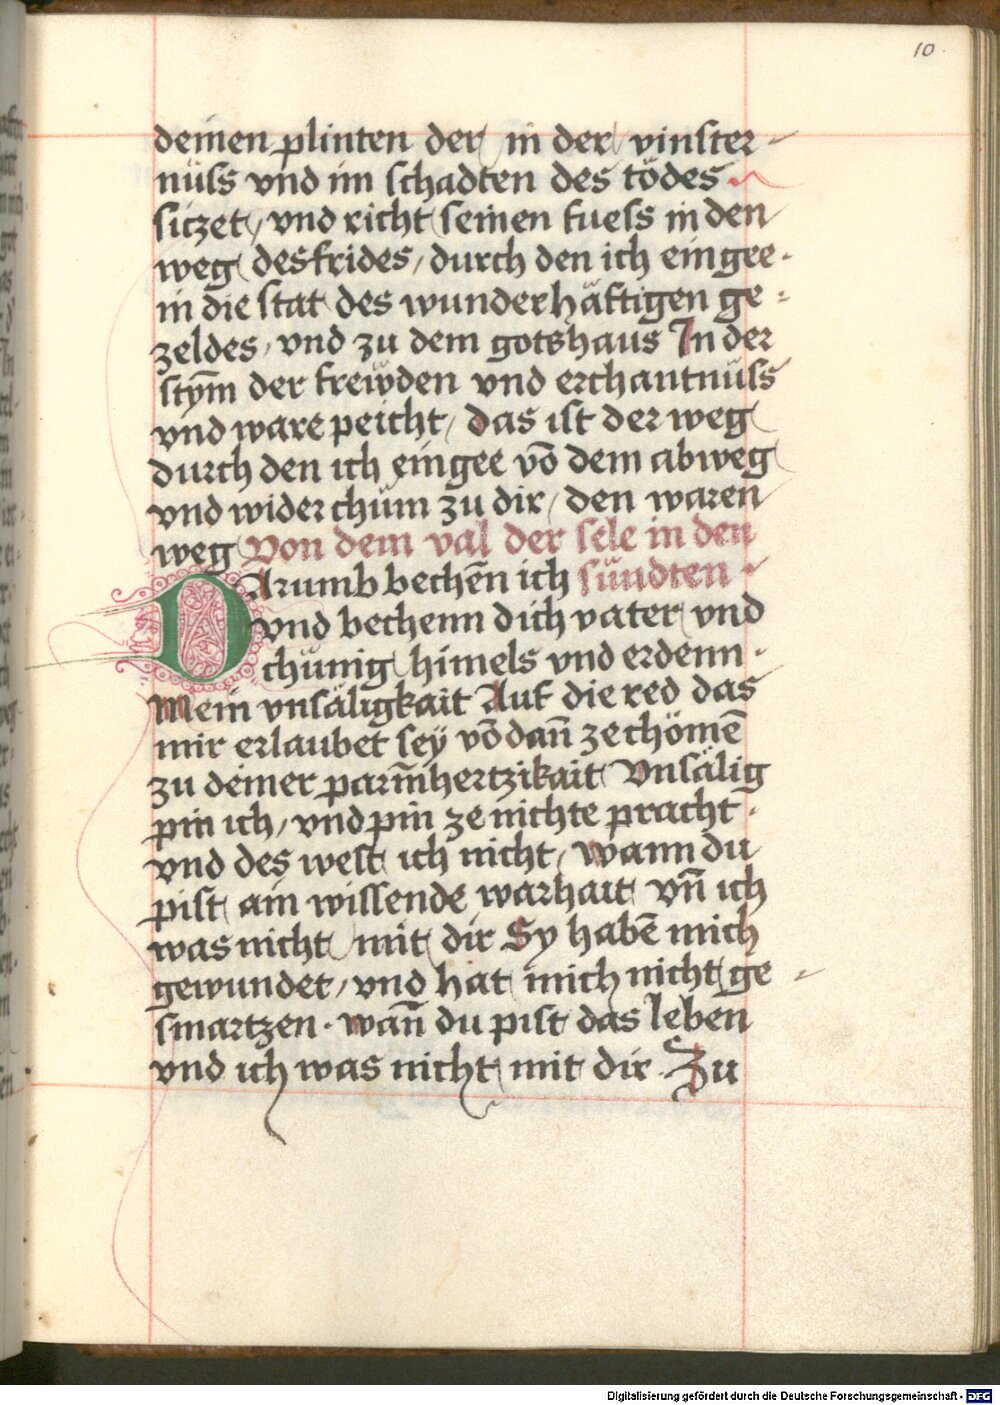 10.
deinen plinten der in der vinster-
nüss vnd im schadten des tödes
siczet, vnd richt seinen fuess in den
weg des frides, durch den ich eingee-
in die stat des wunderhäftigen ge-
zeldes, vnd zu dem gotshaus In der
stym̄ der frewden vnd erchantnüss
vnd ware peicht, das ist der weg
durch den ich eingee vō dem abweg
vnd wider chüm zu dir, den waren
weg Von dem val der sele in den
DArumb bechēn ich sündten
vnd bechenn dich vater vnd
chünig himels vnd erdenn.
Mein vnsäligkait Auf die red das
mir erlaubet seÿ vō dañ ze chömē
zu deiner parm̄hertzikait Vnsälig
pin ich, vnd pin ze nichte pracht.
vnd des west ich nicht, wann du
pist ain wissende warhait vn̄ ich
was nicht mit dir Sy habē mich
gewundet, vnd hat mich nicht ge-
smartzen. wan̄ du pist das leben
vnd ich was nicht mit dir. Zu
Digitalisierung gefördert durch die Deutsche Forschungsgemeinschaft - DFG